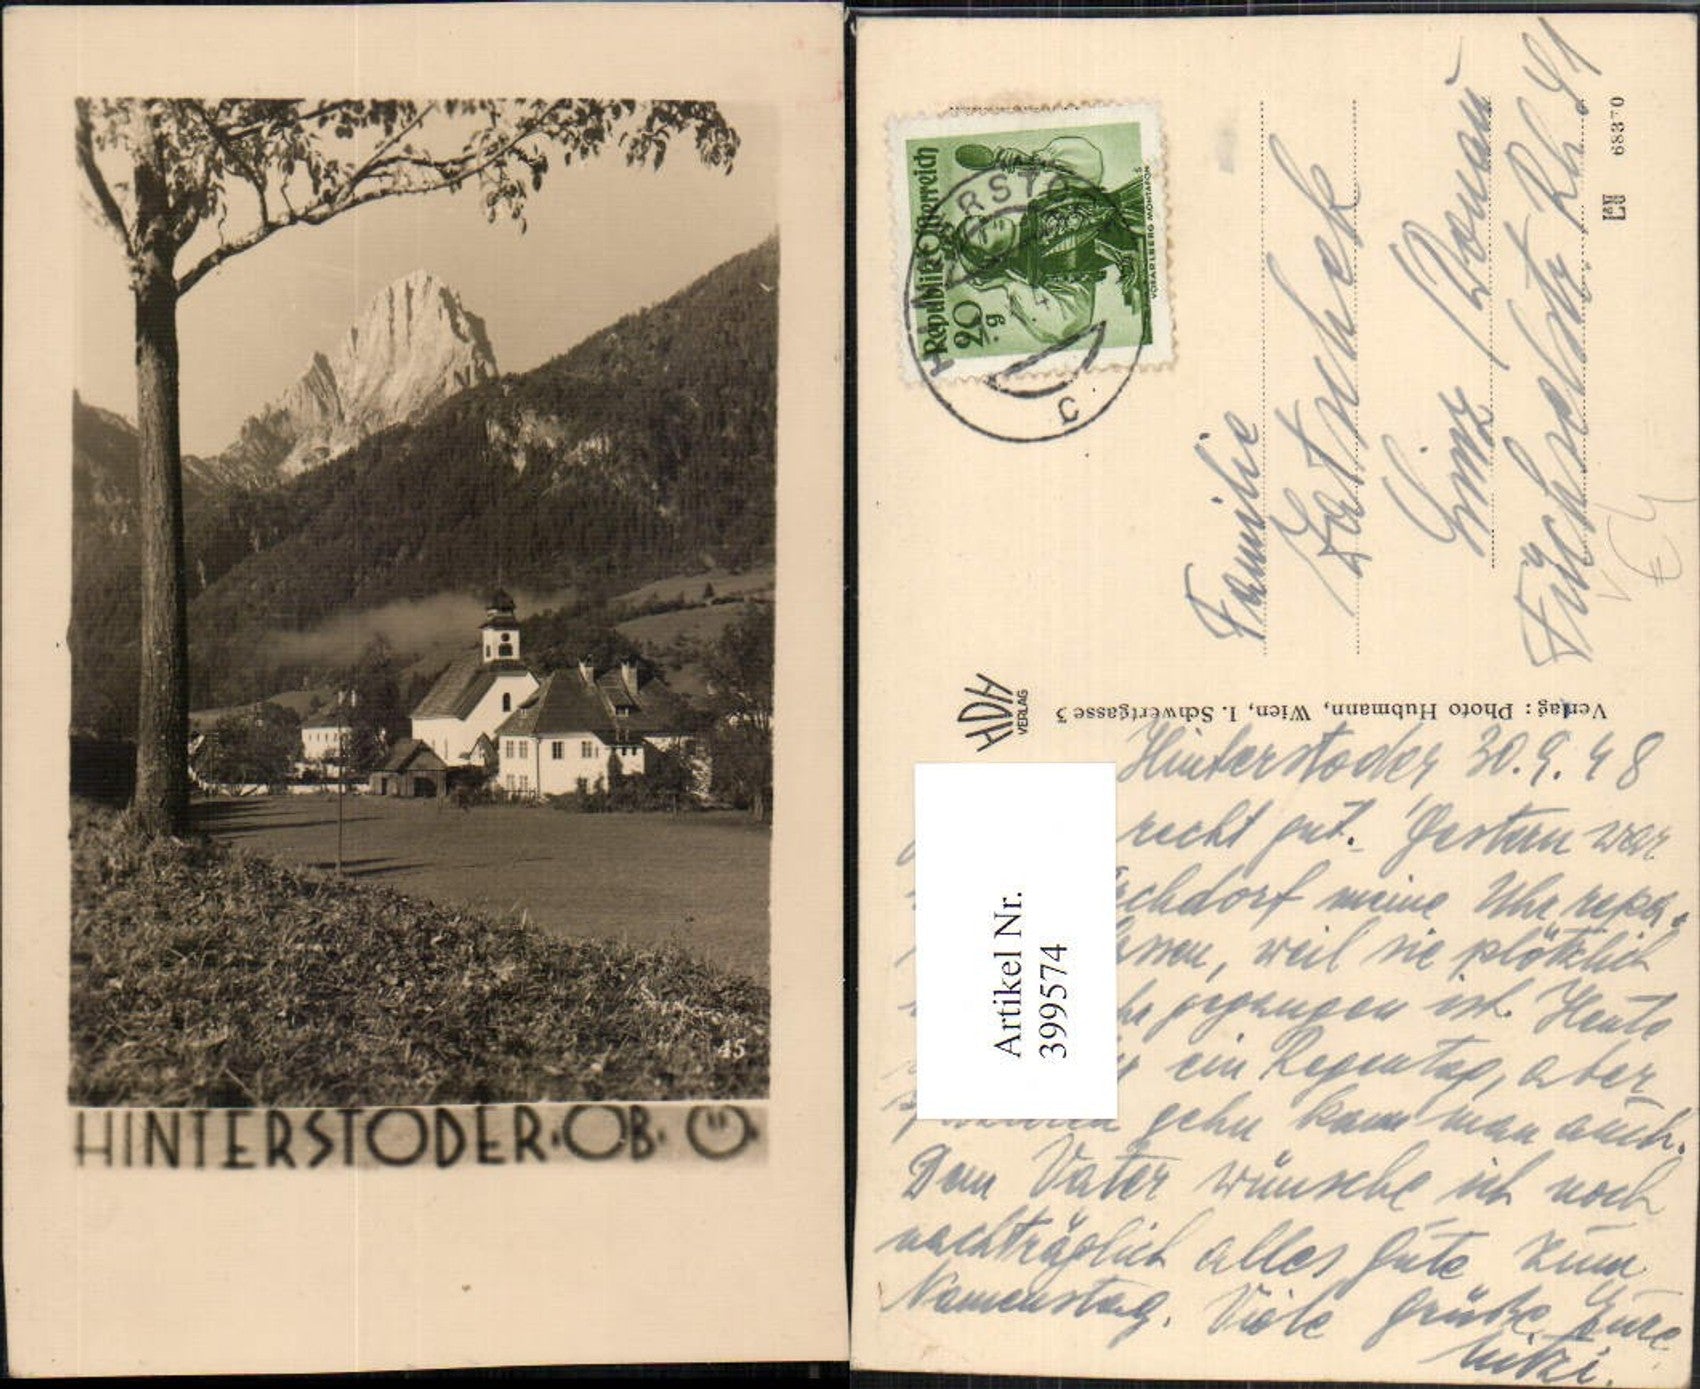 45
HINTERSTODER·OB·Ö·
Republik Österreich
20 g
VORARLBERG MONTAFON
Familie
Linz / Donau
68370
HDH
VERLAG
Verlag: Photo Hubmann, Wien, I. Schwertgasse 3
Artikel Nr.
399574
Hinterstoder 30.9.48
recht gut. Gestern war
chdorf meine Uhr repa-
lassen, weil sie plötzlich
gegangen ist. Heute
ein Regentag, aber
gehn kann man auch.
Dem Vater wünsche ich noch
nachträglich alles Gute zum
Namenstag. Viele Grüße Eure
Mitzi.